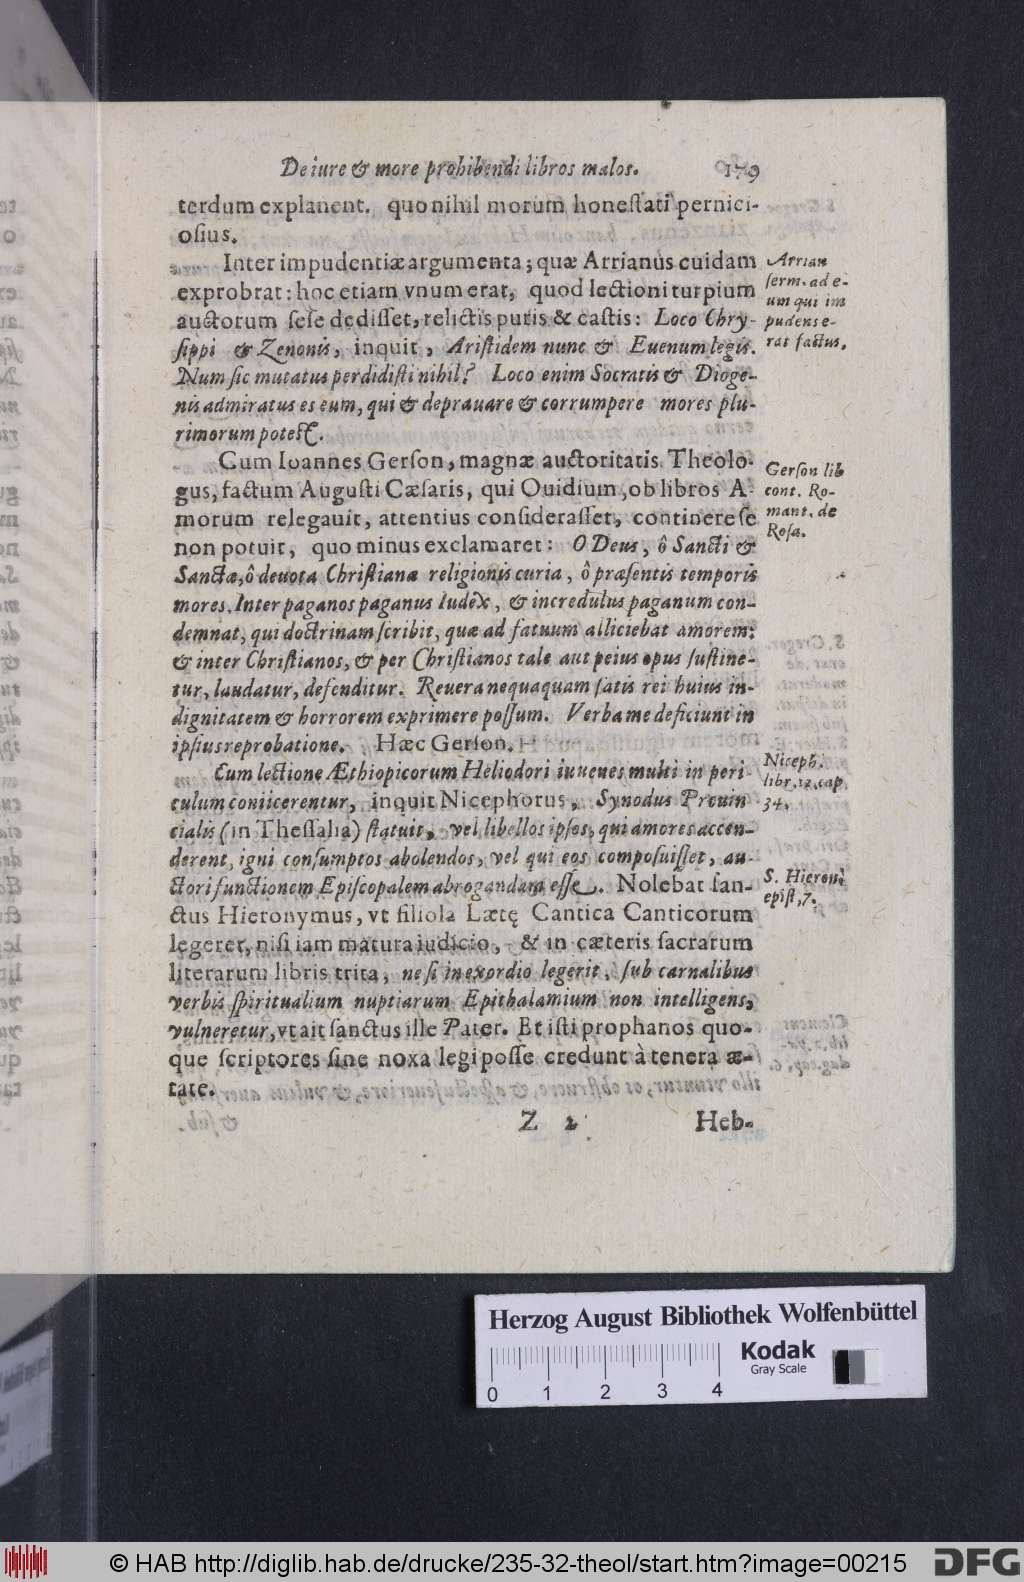 De iure & more prohibendi libros malos. 179
terdum explanent. quo nihil morum honestati pernici-
osius.
Inter impudentiæ argumenta; quæ Arrianus cuidam
exprobrat: hoc etiam vnum erat, quod lectioni turpium
auctorum sese dedisset, relictis puris & castis: Loco Chry-
sippi & Zenonis, inquit, Aristidem nunc & Euenum legis.
Num sic mutatus perdidisti nihil? Loco enim Socratis & Dioge-
nis admiratus es eum, qui & deprauare & corrumpere mores plu-
rimorum potest.
Arrian
serm. ad e-
um qui im
pudens e-
rat factus.
Cum Ioannes Gerson, magnæ auctoritatis Theolo-
gus, factum Augusti Cæsaris, qui Ouidium, ob libros A-
morum relegauit, attentius considerasset, continere se
non potuit, quo minus exclamaret: O Deus, ô Sancti &
Sanctæ, ô deuota Christianæ religionis curia, ô præsentis temporis
mores. Inter paganos paganus Iudex, & incredulus paganum con-
demnat, qui doctrinam scribit, quæ ad fatuum alliciebat amorem:
& inter Christianos, & per Christianos tale aut peius opus sustine-
tur, laudatur, defenditur. Reuera nequaquam satis rei huius in-
dignitatem & horrorem exprimere possum. Verba me deficiunt in
ipsius reprobatione. Hæc Gerson.
Gerson lib
cont. Ro-
mant. de
Rosa.
Cum lectione Æthiopicorum Heliodori iuuenes multi in peri-
culum coniicerentur, inquit Nicephorus, Synodus Prouin
cialis (in Thessalia) statuit, vel libellos ipsos, qui amores accen-
derent, igni consumptos abolendos, vel qui eos composuisset, au-
ctori functionem Episcopalem abrogandam esse. Nolebat san-
ctus Hieronymus, vt filiola Lætę Cantica Canticorum
legeret, nisi iam matura iudicio, & in cæteris sacrarum
literarum libris trita, ne si in exordio legerit, sub carnalibus
verbis spiritualium nuptiarum Epithalamium non intelligens,
vulneretur, vt ait sanctus ille Pater. Et isti prophanos quo-
que scriptores sine noxa legi posse credunt à tenera æ-
tate.
Niceph.
libr. 12. cap
34.
S. Hieroni
epist, 7.
Z 2 Heb-
Herzog August Bibliothek Wolfenbüttel
Kodak
Gray Scale
0 1 2 3 4
© HAB http://diglib.hab.de/drucke/235-32-theol/start.htm?image=00215
DFG